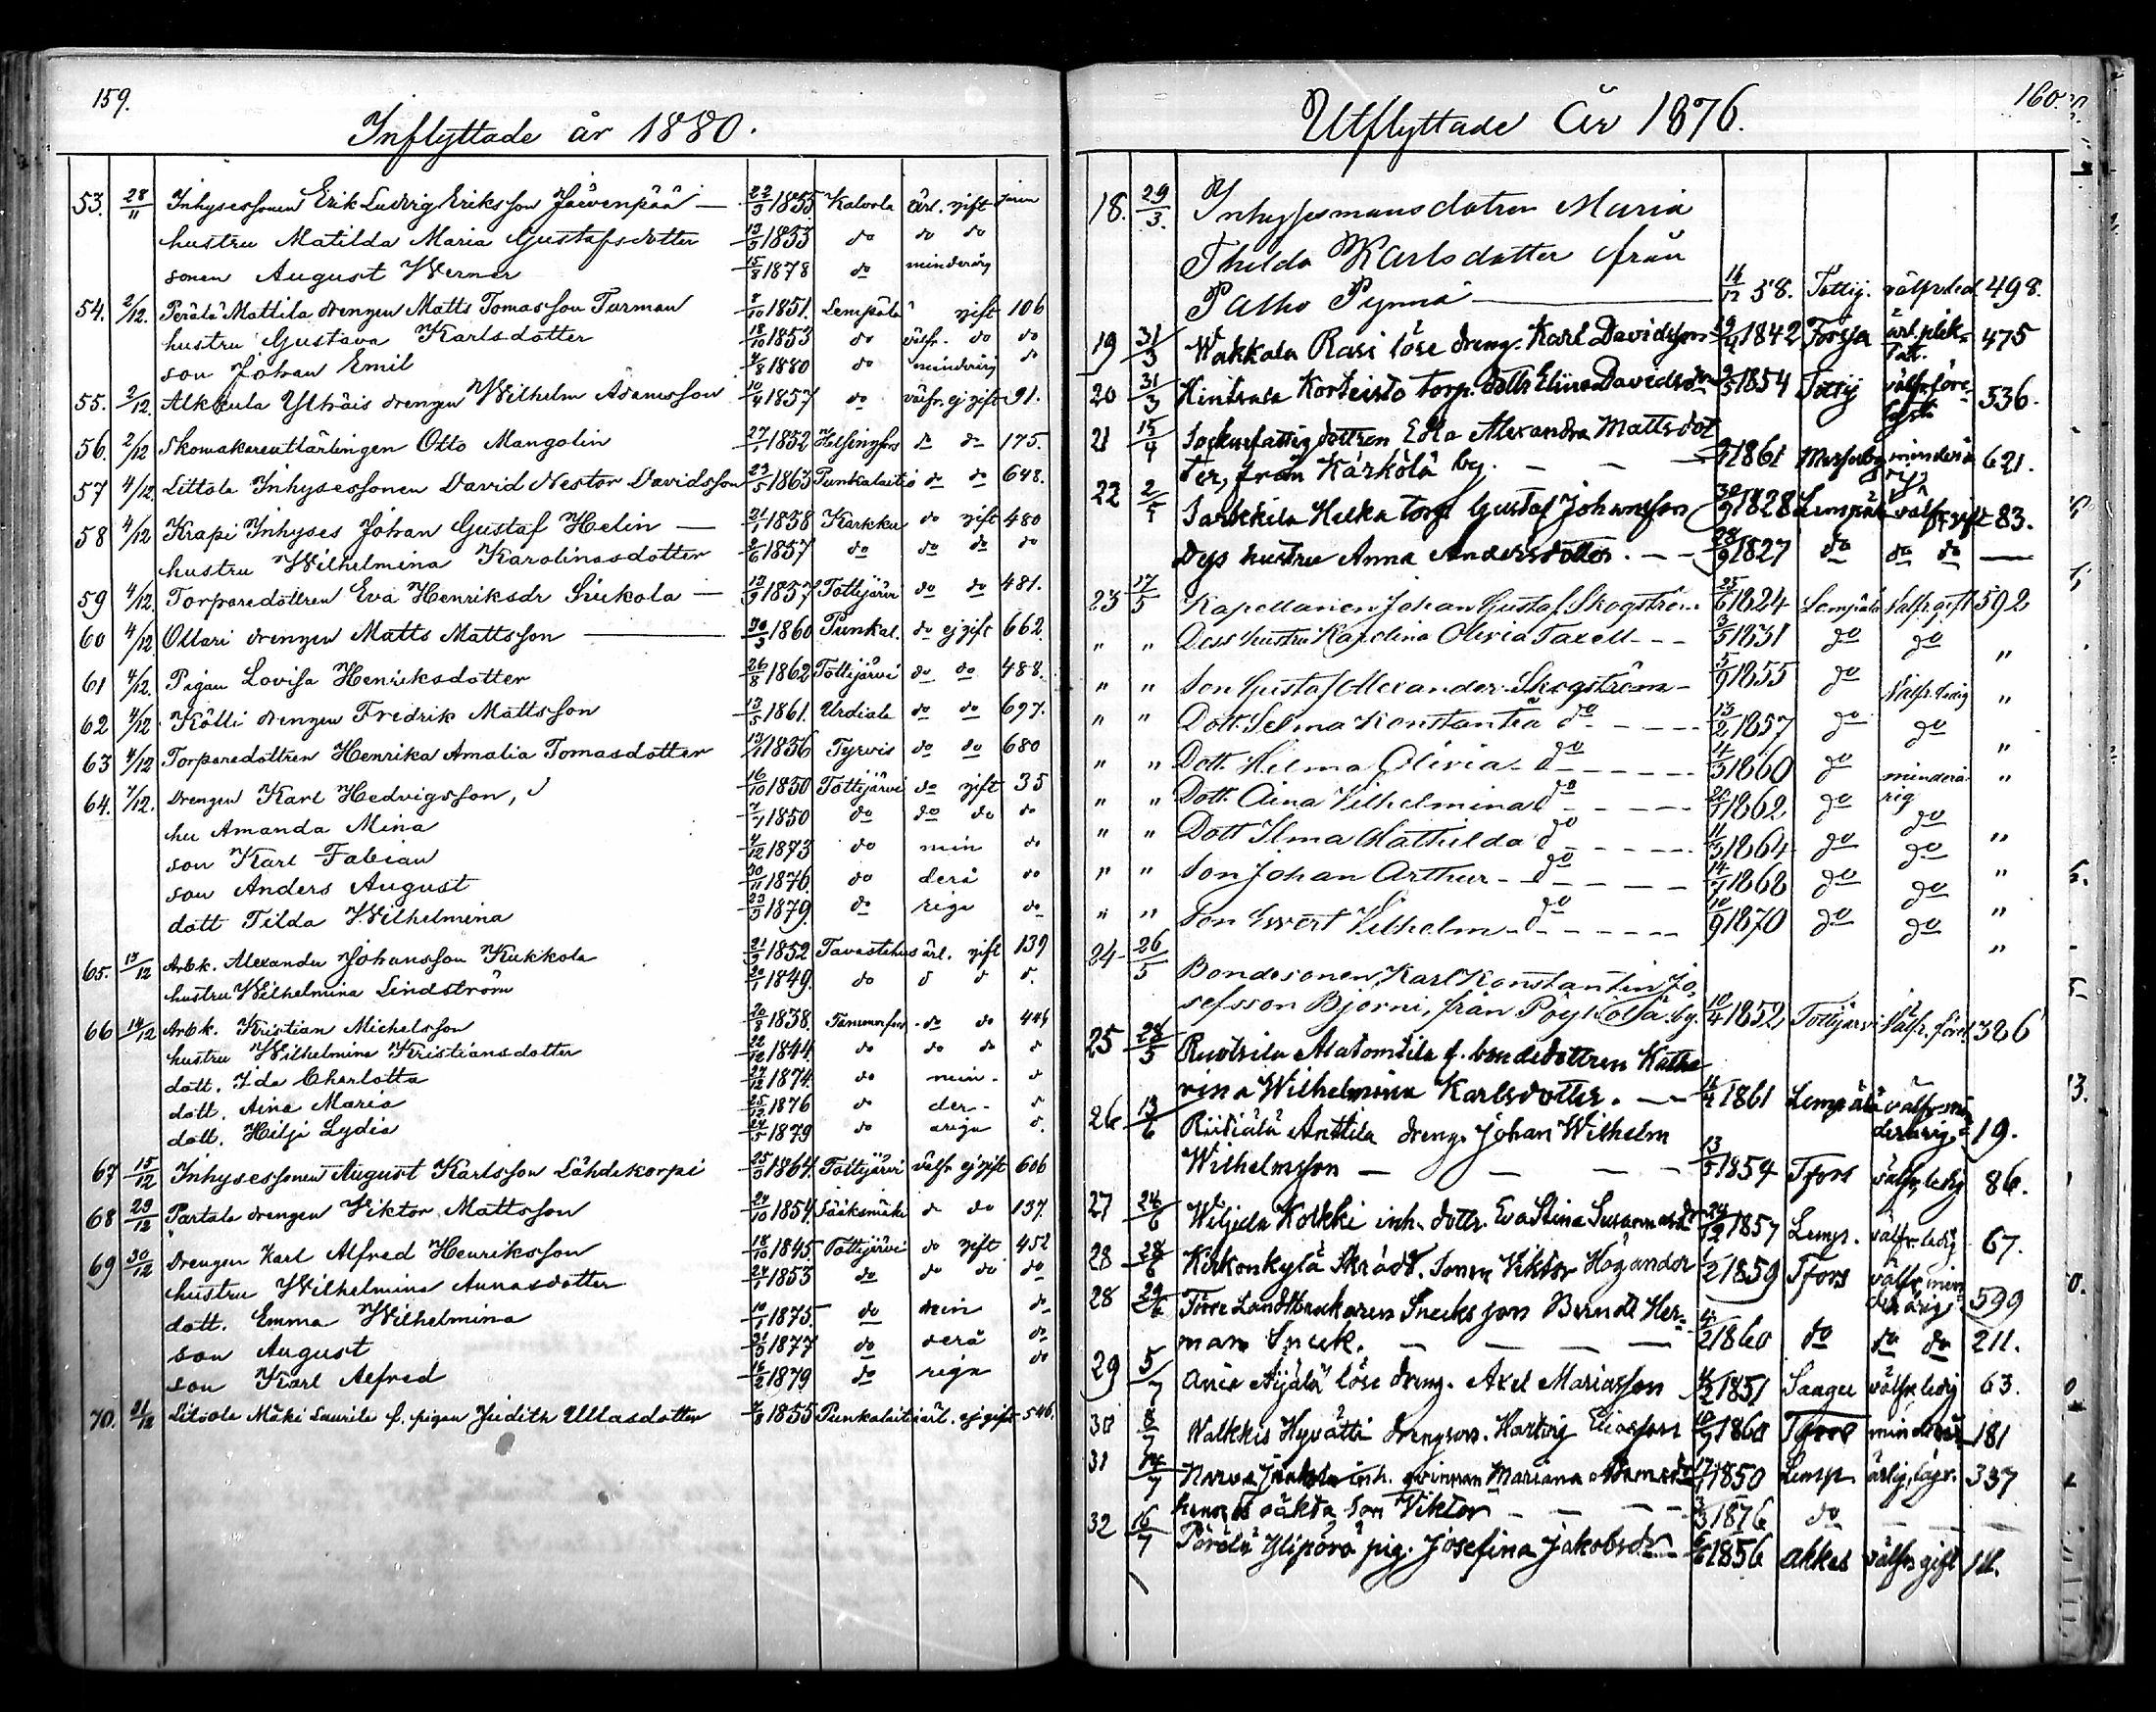 159.
Inflyttade år 1880.
53. 28/11 Inhysessonen Erik Ludvig Eriksson Järvenpää — 22/9 1855 Kalvola ärl. gift
hustru Matilda Maria Gustafsdotter 1833 do do do
sonen August Werner 15/8 1878 do minderårig
54. 2/12. Perälä Mattila drengen Matts Tomasson Turman 8/10 1851. Lempälä gift 106
hustru Gustava Karlsdotter 18/10 1853 do välfr. do do
son Johan Emil 4/8 1880 do minderårig do
55. 2/12. Alkkula Yliräis drengen Wilhelm Adamsson 10/4 1857 do välfr. ej gift 91.
56. 2/12 Skomakareutlärlingen Otto Mangolin 27/1 1852 Helsingfors do do 175.
57 4/12 Littola Inhysessonen David Nestor Davidsson 23/5 1863 Punkalaitio do do 648.
58 4/12 Krapi Inhyses Johan Gustaf Helin — 21/1 1858 Karkku do gift 480
hustru Wilhelmina Karolinasdotter 2/6 1857 do do do do
59 4/12. Torparedottren Eva Henriksdr Siukola — 1857 Tottijärvi do do 481.
60 4/12 Ollari drengen Matts Mattsson — 30/3 1860 Punkal. do ej gift 662.
61 4/12. Pigan Lovisa Henriksdotter 26/8 1862 Tottijärvi do do 488.
62 4/12 Kölli drengen Fredrik Mattsson 13/5 1861. Urdiala do do 697.
63 4/12 Torparedottren Henrika Amalia Tomasdotter 1856 Tyrvis do do 680
64. 7/12. Drengen Karl Hedvigsson, 16/10 1850 Tottijärvi do gift 35
hu Amanda Mina 7/7 1850 do do do do
son Karl Fabian 4/12 1873 do min do
son Anders August 30/11 1876. do derå do
dott Tilda Wilhelmina 23/5 1879. do riga do
65. 13/12 Arbk. Alexander Johansson Kukkola 1852 Tavastehus ärl. gift 139
hustru Wilhelmina Lindström 20/1 1849. do
66 14/12 Arbk. Kristian Michelsson 20/8 1838. Tammerfors do do
hustru Wilhelmina Kristiansdotter 22/12 1844. do do do
dott. Ida Charlotta 27/12 1874. do min-
dott. Aina Maria 25/12 1876 do der-
dott. Hilja Lydia 24/5 1879 do ariga
67 15/12 Inhysessonen August Karlsson Lähdekorpi 25/3 1864. Tottijärvi välfr ej gift 606
68 29/12 Partala drengen Viktor Mattsson 24/10 1854. Sääksmäki do 137.
69 30/12 Drengen Karl Alfred Henriksson 18/10 1845. Tottijärvi do gift 452
hustru Wilhelmina Annasdotter 24/1 1853 do do do do
dott. Emma Wilhelmina 10/1 1875. do min do
son August 1877 do derå do
son Karl Alfred 16/2 1879 do riga do
70. 31/12 Litsola Mäki Laurila f. pigan Judith Ullasdotter 1855 Punkalaitio ärl. ej gift 546.
160.
Utflyttade År 1876.
18. 29/3. Inhysesmansdotren Maria
Thilda Karlsdotter från
Palho Pynnä — 16/12 58. Tottij. välfr. led. 498.
19 31/3 Wakkala Rasi löse dreng. Karl Davidsson 1842 Forssa 475
20 31/3 Hintsala Korteisto torp. dottr Elina Davidsdr 1854 Tottij välfr. före- 536.
21 15/4 Sockenfattig dottren Edla Alexandra Mattsdot
ter, från Kärkölä by. — 1861 minderå 621.
22 2/5 Sarbekila Helka torp Gustaf Johansson 30/9 1828 Lempälä välfr gift 83.
Dess hustru Anna Andersdotter. — 28/9 1827 do do do —
23 17/5 Kapellanen Johan Gustaf Skogström 25/6 1824 Lempälä Välfr. gift 592
" " Dess hustru Karolina Olivia Taxell — 3/5 1831 do do "
" " Son Gustaf Alexander Skogström — 1855 do Välfr. ledig "
" " Dott. Selma Konstantia do — 13/2 1857 do do "
" " Dott. Hilma Olivia do — 4/3 1860 do minderå- "
" " Dott. Aina Vilhelmina do — 1862 do rig do
" " Dott Ilma Mathilda do — 11/3 1864 do do "
" " Son Johan Arthur do — 14/7 1868 do do "
" " Son Evert Vilhelm do — 10/9 1870 do do "
24 26/5 Bondesonen Karl Konstantin Jo-
sefsson Bjorni, från Pöyhölä by. 10/4 1852 Tottijärvi Välfr. före 326
25 28/5 Ruotsila Alatomtila f. bondedottren Katha
rina Wilhelmina Karlsdotter. — 16/4 1861 Lempälä välfr. min
derårig 19.
26 13/6 Riitiälä Anttila dreng. Johan Wilhelm
Wilhelmsson — 13/5 1854 Tfors välfr. ledig 86.
27 26/6 Wiljeda Kotkki inh. dottr. Eva Stina Susannasdr 24/12 1857 Lemp. välfr ledig 67.
28 28/6 Kirkonkylä Skrädd. Sonen Viktor Högander 1/2 1859 Tfors välfr. min
derårig 599
28 29/6 Före Landtbrukaren Snecks son Berndt Her-
man Sneck. — 4/2 1860 do do do 211.
29 5/7 Ania Äijälä löse dreng. Axel Mariasson 1851 välfr. ledig 63.
30 8/7 Walkkis Hyvätti drengson. Hartvig Eliasson 1860 Tfors minderå 181
31 14/7 Narva inh. qvinnan Mariana 1850 Lemp. 337
hennes oäkta son Viktor — 3/3 1876 do —
32 16/7 Pörölä Ylipörö pig. Josefina Jakobsdr — 1856 Akkas välfr gift 111.